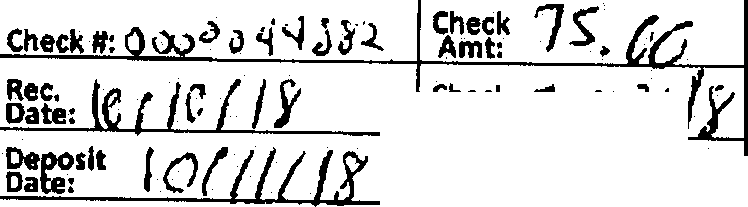 Check #: 0000044382 Check Amt: 75.00
Rec. Date: 10/10/18 18
Deposit Date: 10/11/18